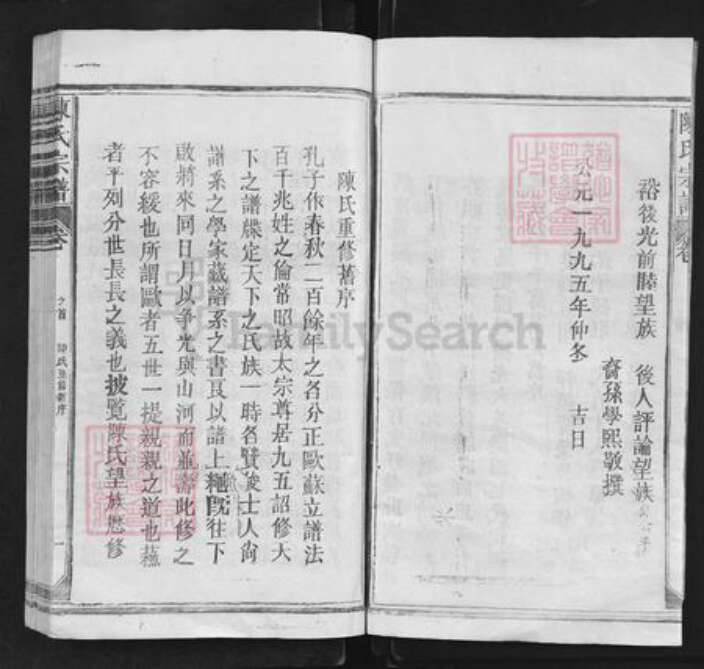 裕後光前睦望族　後人評論望族公心平
裔孫學熙敬撰
公元一九九五年仲冬　吉日
陳氏重修舊序
孔子作春秋二百餘年之名分正歐蘇立譜法
百千兆姓之倫常昭故太宗尊居九五詔修天
下之譜牒定天下之氏族一時各賢俊士人尚
譜系之學家藏譜系之書良以譜上繩既往下
啟將來同日月以爭光與山河而並壽此修之
不容緩也所謂歐者五世一提親親之道也蘇
者平列分世長長之義也披覽陳氏望族懋修
陳氏宗譜
卷之首
陳氏重修舊序
一
陳氏宗譜
卷
FamilySearch